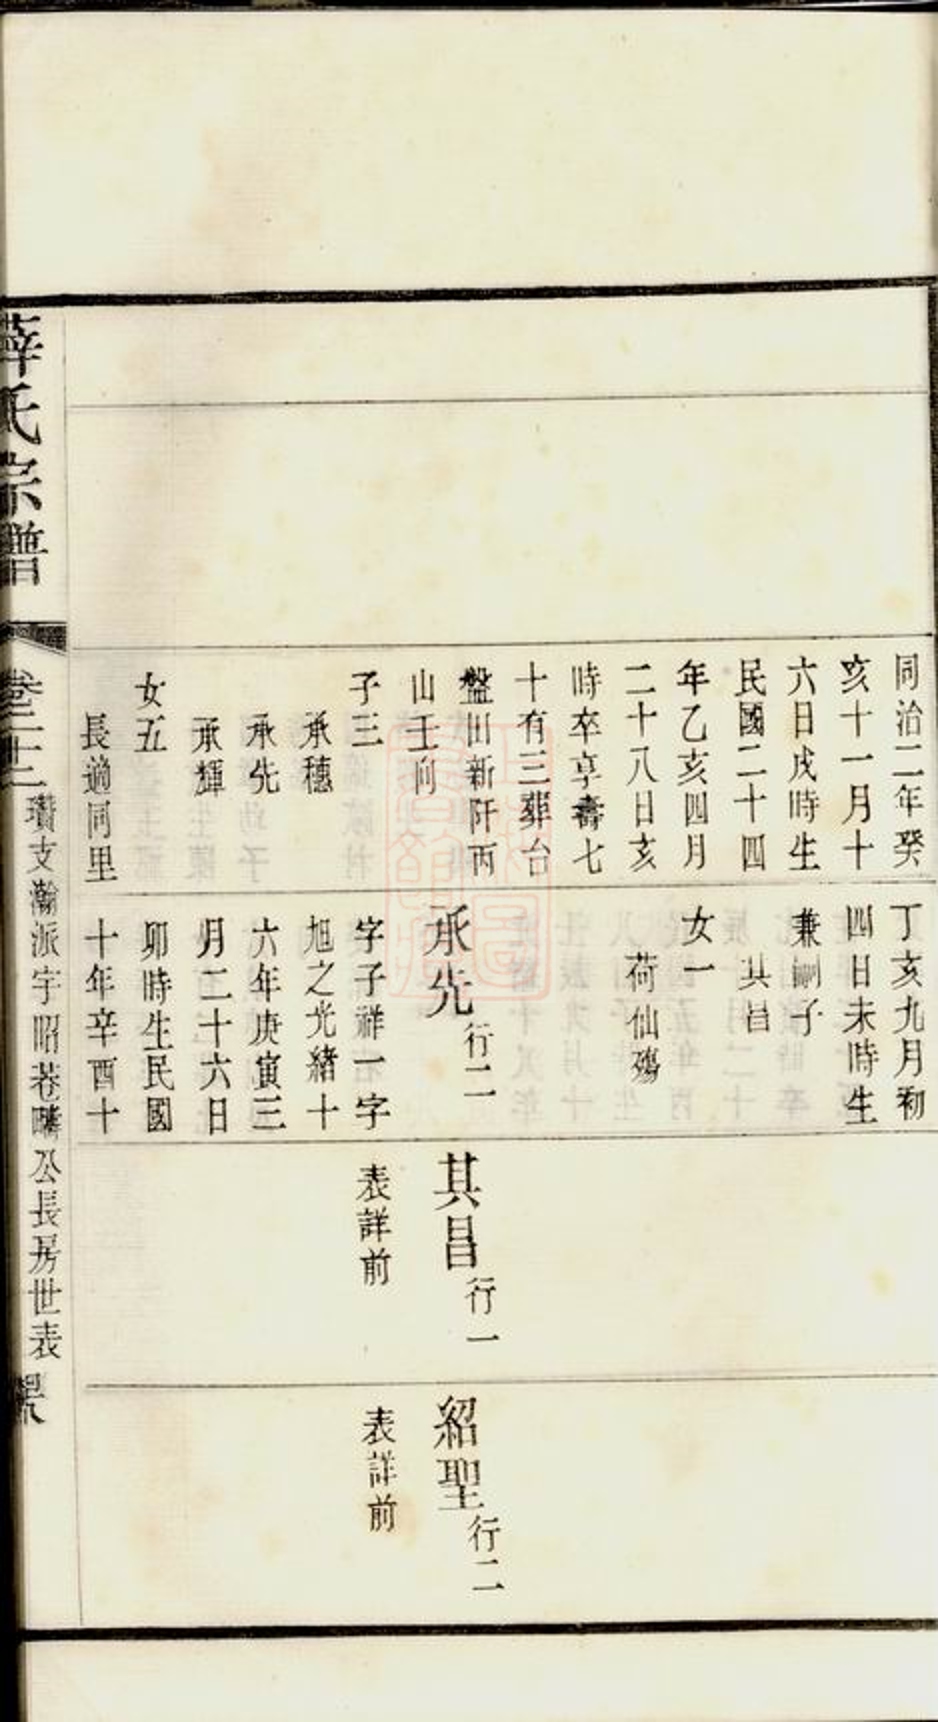 同治二年癸
亥十一月十
六日戌時生
民國二十四
年乙亥四月
二十八日亥
時卒享壽七
十有三葬台
盤田新阡丙
山壬向
子三
承穗
承先
承輝
女五
長適同里
丁亥九月初
四日未時生
兼嗣子
其昌
女一
荷仙殤
承先行二
字子祥一字
旭之光緒十
六年庚寅三
月二十六日
卯時生民國
十年辛酉十
其昌行一
表詳前
紹聖行二
表詳前
薛氏宗譜
卷二十二
瓚支瀚派宇昭巷疇公長房世表